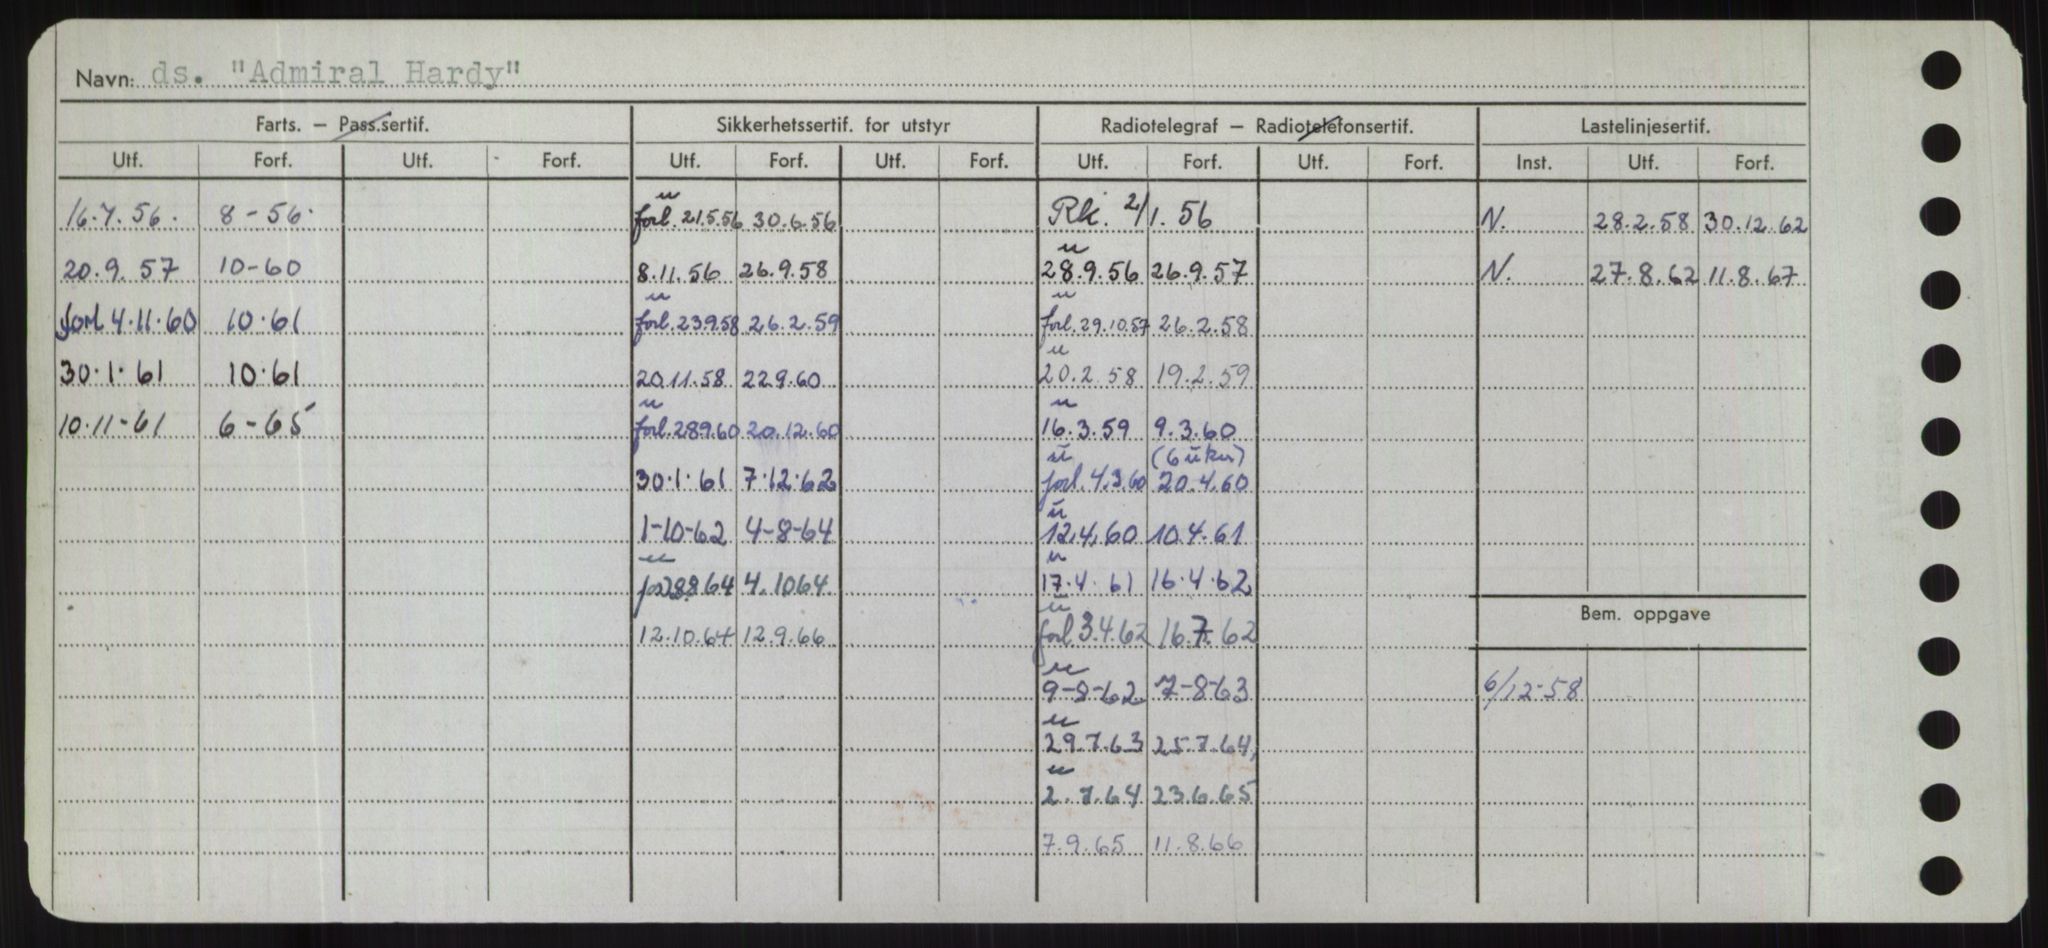 Navn: ds. "Admiral Hardy"
Farts. — Pass.sertif. Sikkerhetssertif. for utstyr Radiotelegraf — Radiotelefonsertif. Lastelinjesertif.
Utf. Forf. Utf. Forf. Utf. Forf. Utf. Forf. Utf. Forf. Utf. Forf. Inst. Utf. Forf.
u
16.7.56. 8-56. forl. 21.5.56 30.6.56 Rk. 2/1.56 N. 28.2.58 30.12.62
u
20.9.57 10-60 8.11.56 26.9.58 28.9.56 26.9.57 N. 27.8.62 11.8.67
u u
forl 4.11.60 10.61 forl. 23.9.58 26.2.59 forl. 29.10.57 26.2.58
u
30.1.61 10.61 20.11.58 22.9.60 20.2.58 19.2.59
u u
10.11-61 6-65 forl. 28.9.60 20.12.60 16.3.59 9.3.60
u (6 uker)
30.1.61 7.12.62 forl. 4.3.60 20.4.60
u
1-10-62 4-8-64 12.4.60 10.4.61
u u
28.8.64 4.10.64. 17.4.61 16.4.62
u Bem. oppgave
12.10.64 12.9.66 forl 3.4.62 16.7.62
u
9-8-62 7-8-63 6/12-58
u
29.7.63 25.7.64,
u
2.7.64 23.6.65
7.9.65 11.8.66